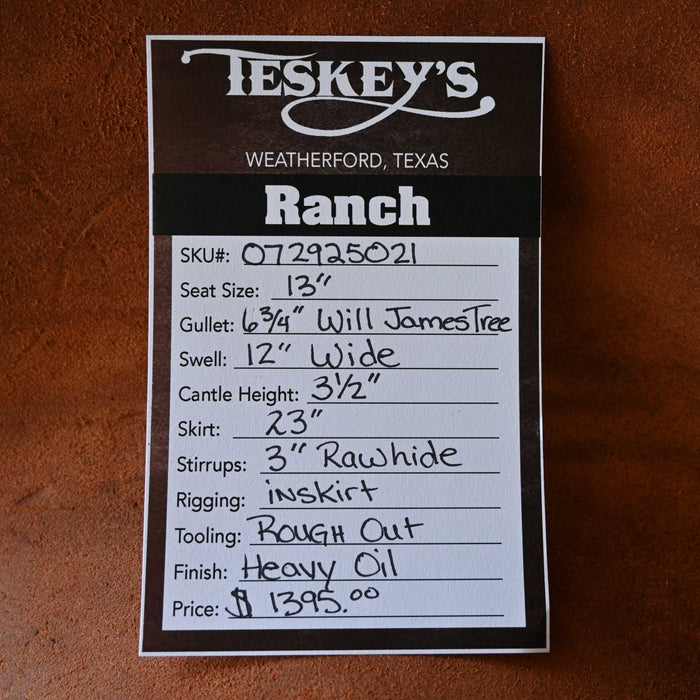 TESKEY'S
WEATHERFORD, TEXAS
Ranch
SKU#: 072925021
Seat Size: 13"
Gullet: 6 3/4" Will James Tree
Swell: 12" Wide
Cantle Height: 3 1/2"
Skirt: 23"
Stirrups: 3" Rawhide
Rigging: inskirt
Tooling: Rough Out
Finish: Heavy Oil
Price: $ 1395.00